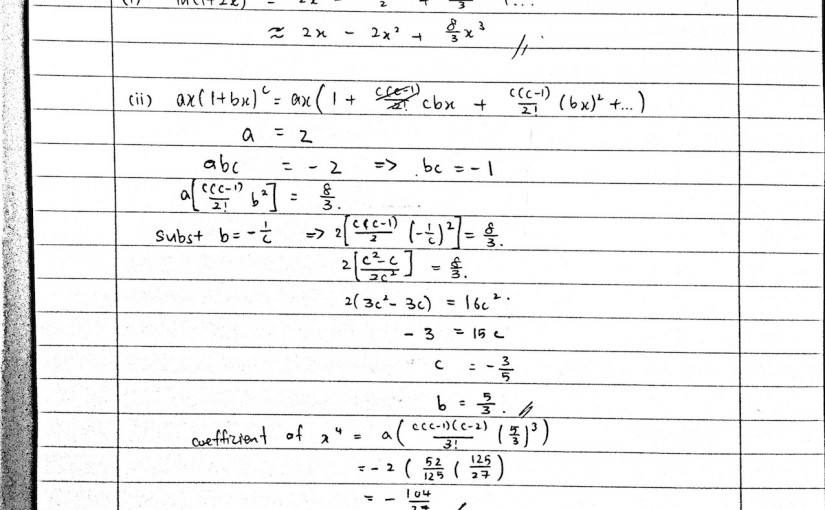 ≈ 2x - 2x² + 8/3 x³ //
(ii) ax(1+bx)^c = ax(1 + cbx + c(c-1)/2! (bx)² + ...)
a = 2
abc = -2 => bc = -1
a[c(c-1)/2! b²] = 8/3.
subst b = -1/c => 2[c(c-1)/2 (-1/c)²] = 8/3.
2[c²-c/2c²] = 8/3.
2(3c²-3c) = 16c².
-3 = 15c
c = -3/5
b = 5/3. //
coefficient of x⁴ = a(c(c-1)(c-2)/3! (5/3)³)
= -2(52/125 (125/27)
= -104/27